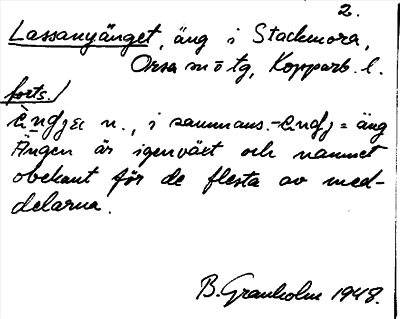 2.
Lassanyänget, äng i Stackmora,
Orsa sn o tg, Kopparb. l.
forts.
n., i sammans. = äng
Ängen är igenväxt och namnet
obekant för de flesta av med-
delarna.
B. Granholm 1948.